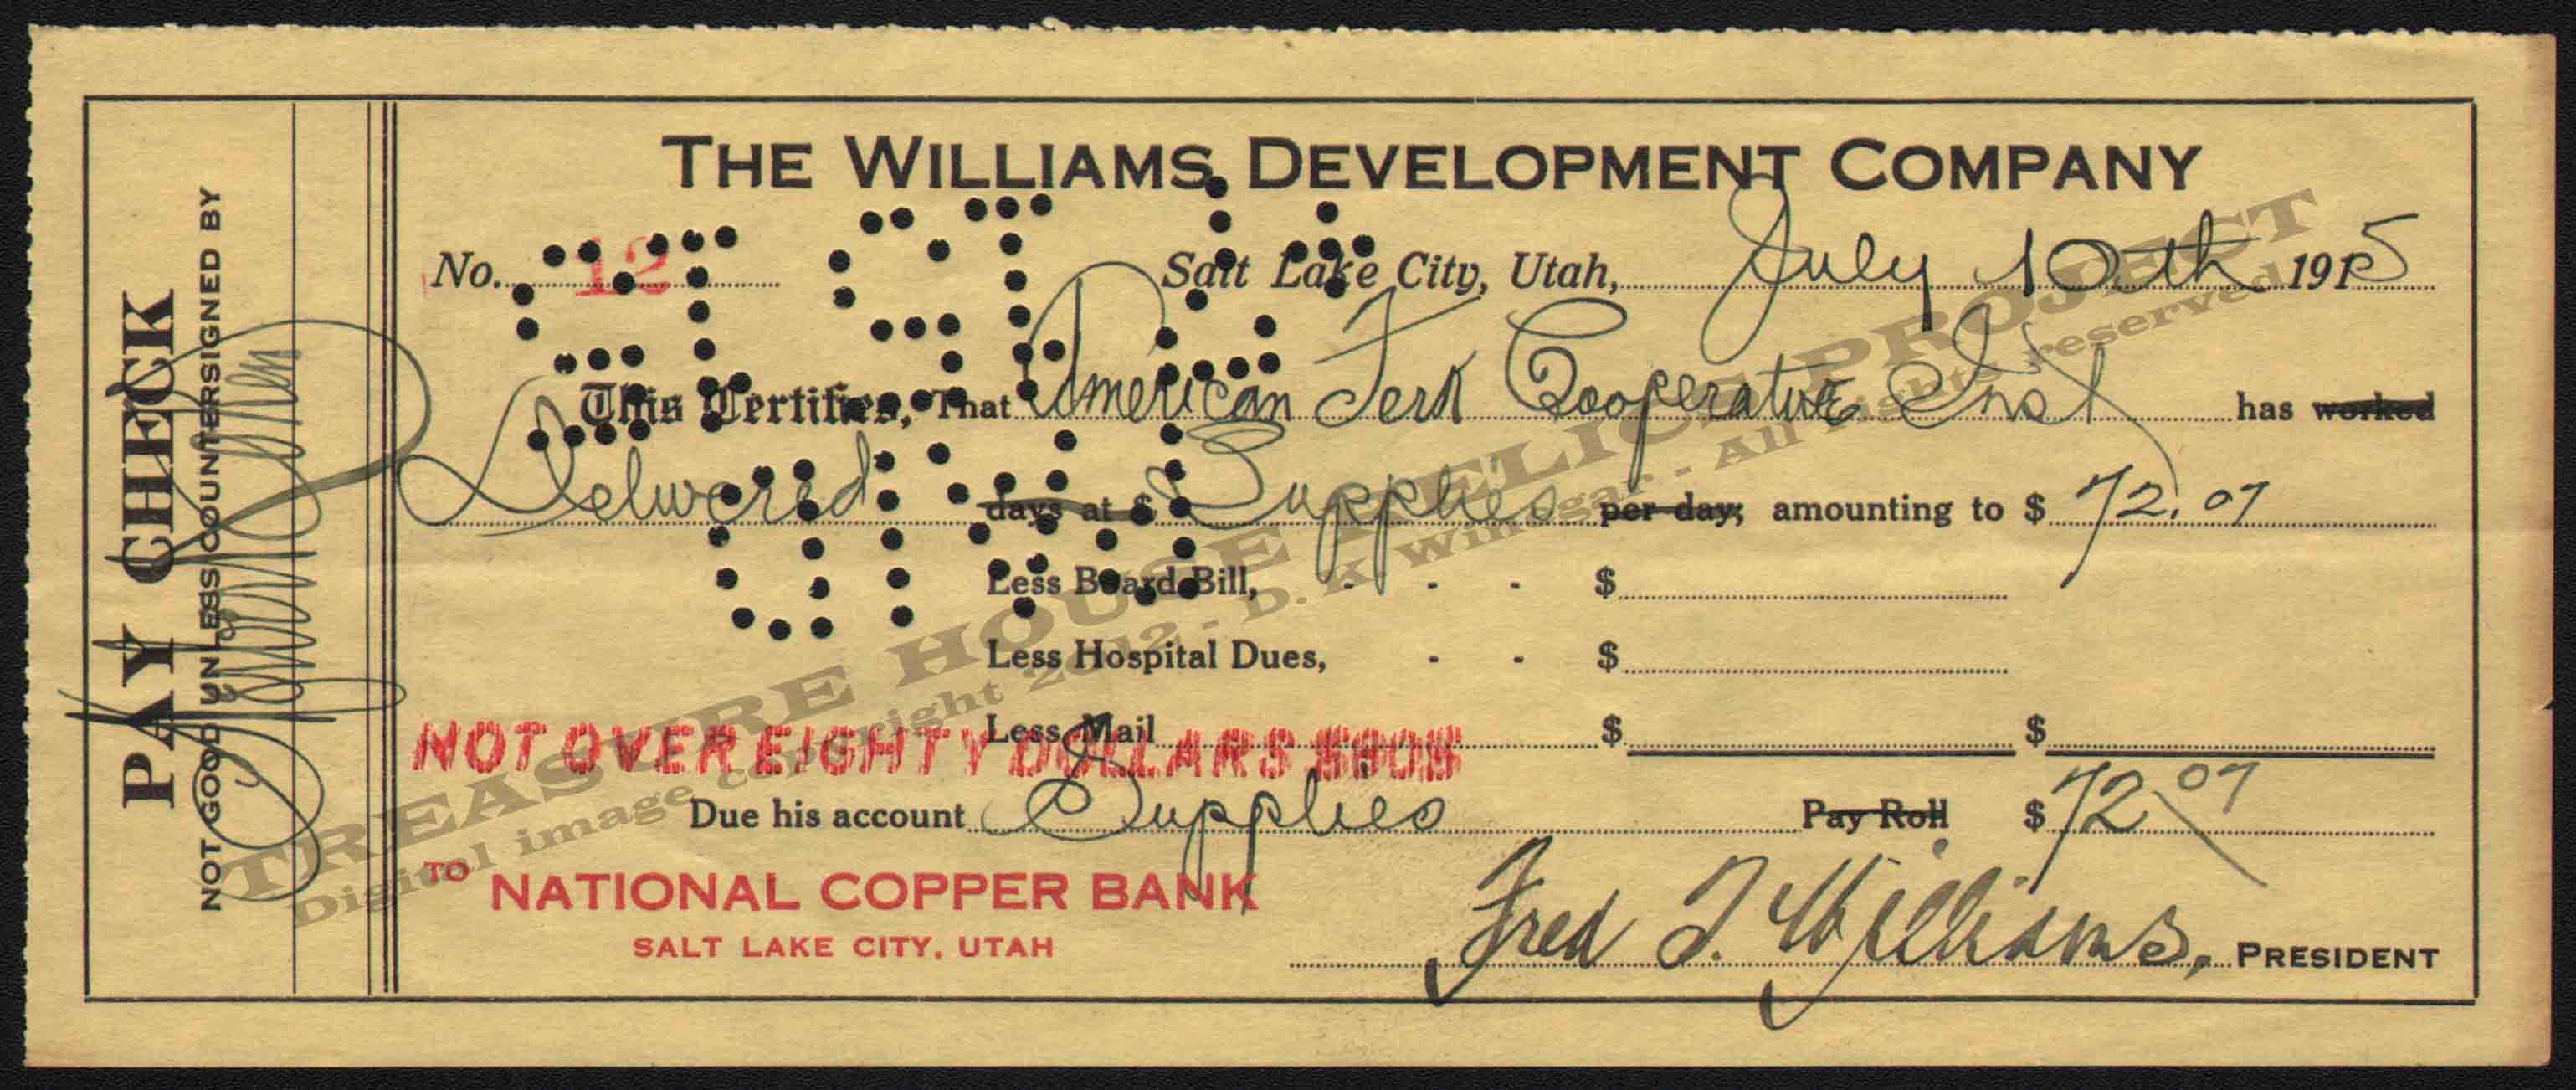 THE WILLIAMS DEVELOPMENT COMPANY
No. 12 Salt Lake City, Utah, July 10th 1915
This Certifies, That American Fork Cooperative Inst has worked
Delivered days at $ Supplies per day; amounting to $ 72.07
Less Board Bill, - - - $
Less Hospital Dues, - - $
Less Mail $ $
NOT OVER EIGHTY DOLLARS $80$
Due his account Supplies Pay Roll $ 72 07
TO NATIONAL COPPER BANK
SALT LAKE CITY, UTAH
Fred J. Williams, PRESIDENT
PAY CHECK
NOT GOOD UNLESS COUNTERSIGNED BY
TREASURE HOUSE RELICS PROJECT
Digital image copyright 2012 - D. K Winegar - All rights reserved